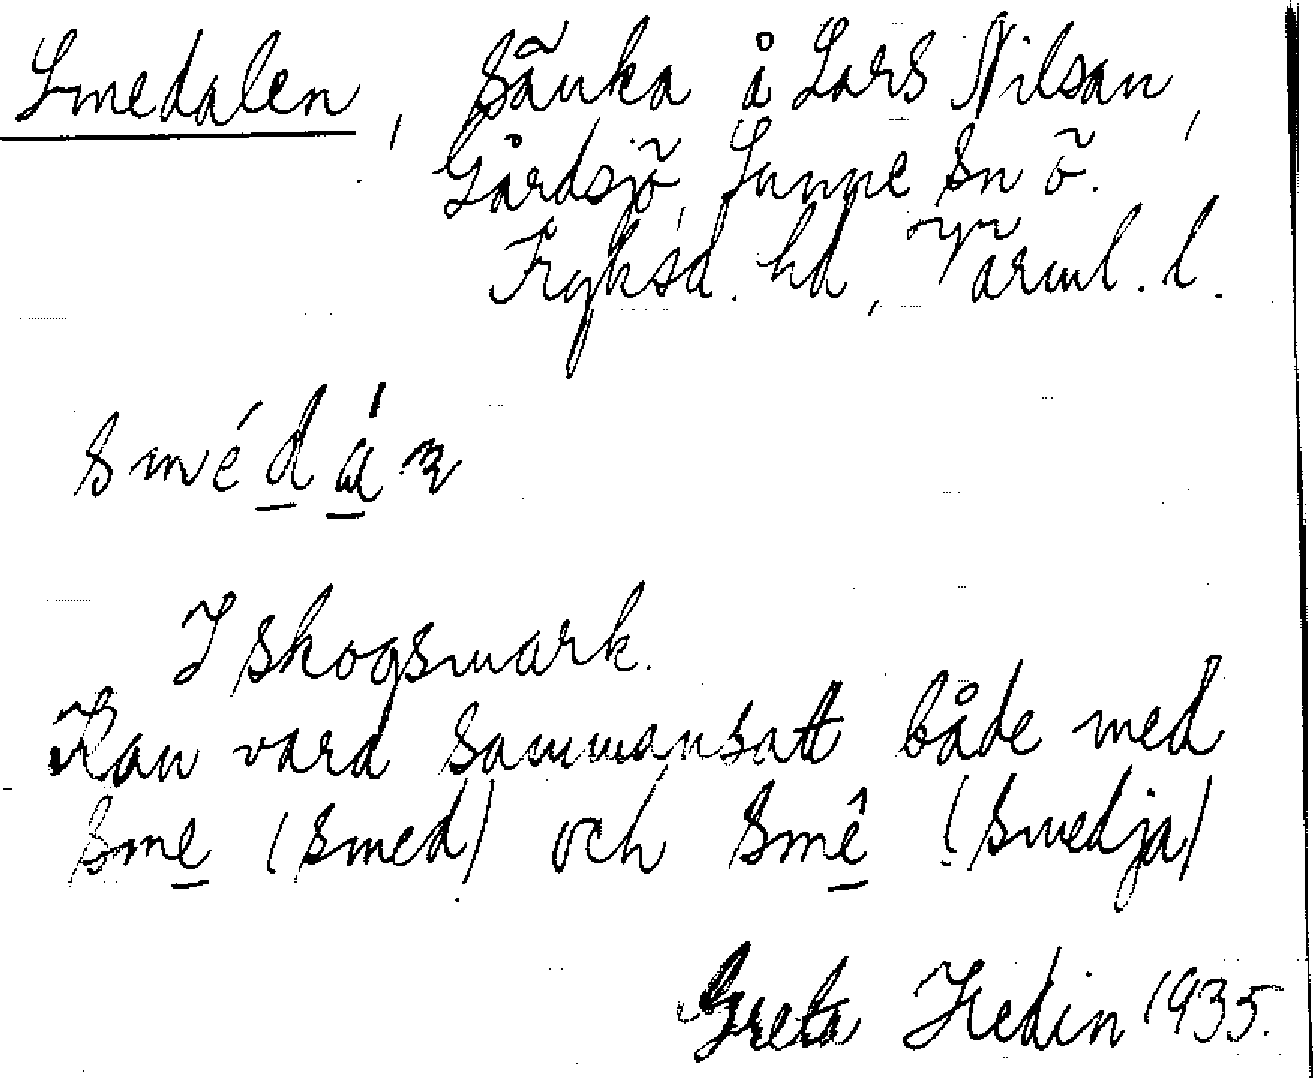 Smedalen, sänka å Lars Nilsan,
Gårdsjö, Sunne sn ö.
Fryksd. hd, Värml. l.
smédáṇ
I skogsmark.
Kan vara sammansatt både med
sme (smed) och smê (smedja)
Greta Hedin 1935.